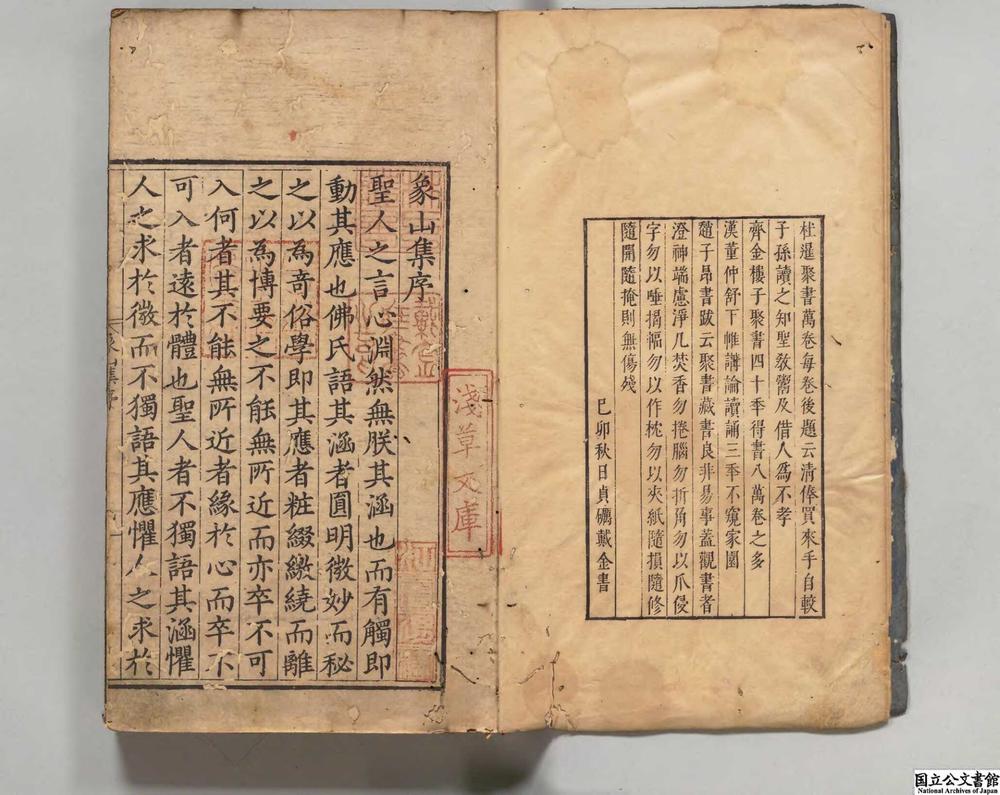 杜暹聚書萬卷每卷後題云清俸買來手自較
子孫讀之知聖敎鬻及借人爲不孝
齊金樓子聚書四十年得書八萬卷之多
漢董仲舒下帷講論讀誦三年不窺家園
趙子昂書跋云聚書藏書良非易事蓋觀書者
澄神端慮淨几焚香勿捲腦勿折角勿以爪侵
字勿以唾揭幅勿以作枕勿以夾紙隨損隨修
隨開隨掩則無傷殘
巳卯秋日貞礪戴金書
象山集序
聖人之言心淵然無朕其涵也而有觸即
動其應也佛氏語其涵者圓明微妙而秘
之以爲奇俗學即其應者粧綴繳繞而離
之以爲博要之不能無所近而亦卒不可
入何者其不能無所近者緣於心而卒不
可入者遠於體也聖人者不獨語其涵懼
人之求於微而不獨語其應懼人之求於
淺草文庫
国立公文書館
National Archives of Japan